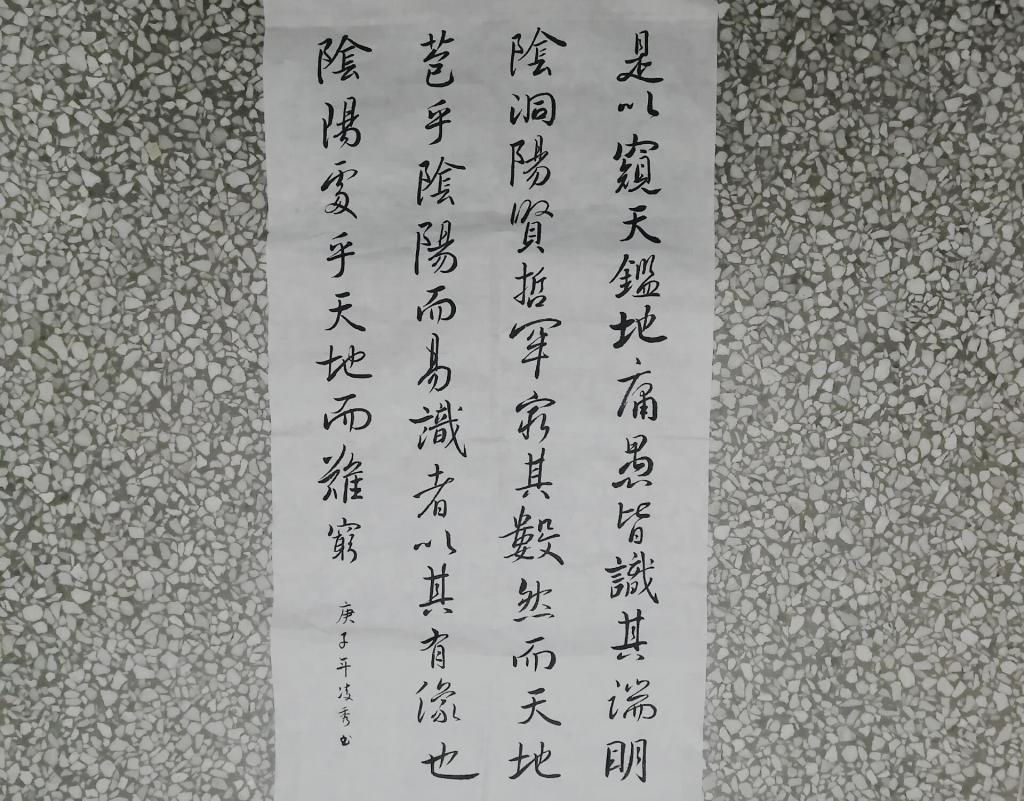 是以窺天鑑地庸愚皆識其端明
陰洞陽賢哲罕窮其數然而天地
苞乎陰陽而易識者以其有像也
陰陽處乎天地而難窮
庚子年凌秀书